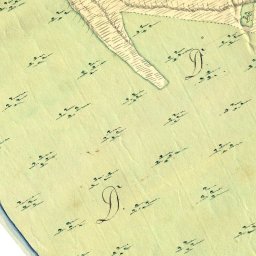 D.
D.